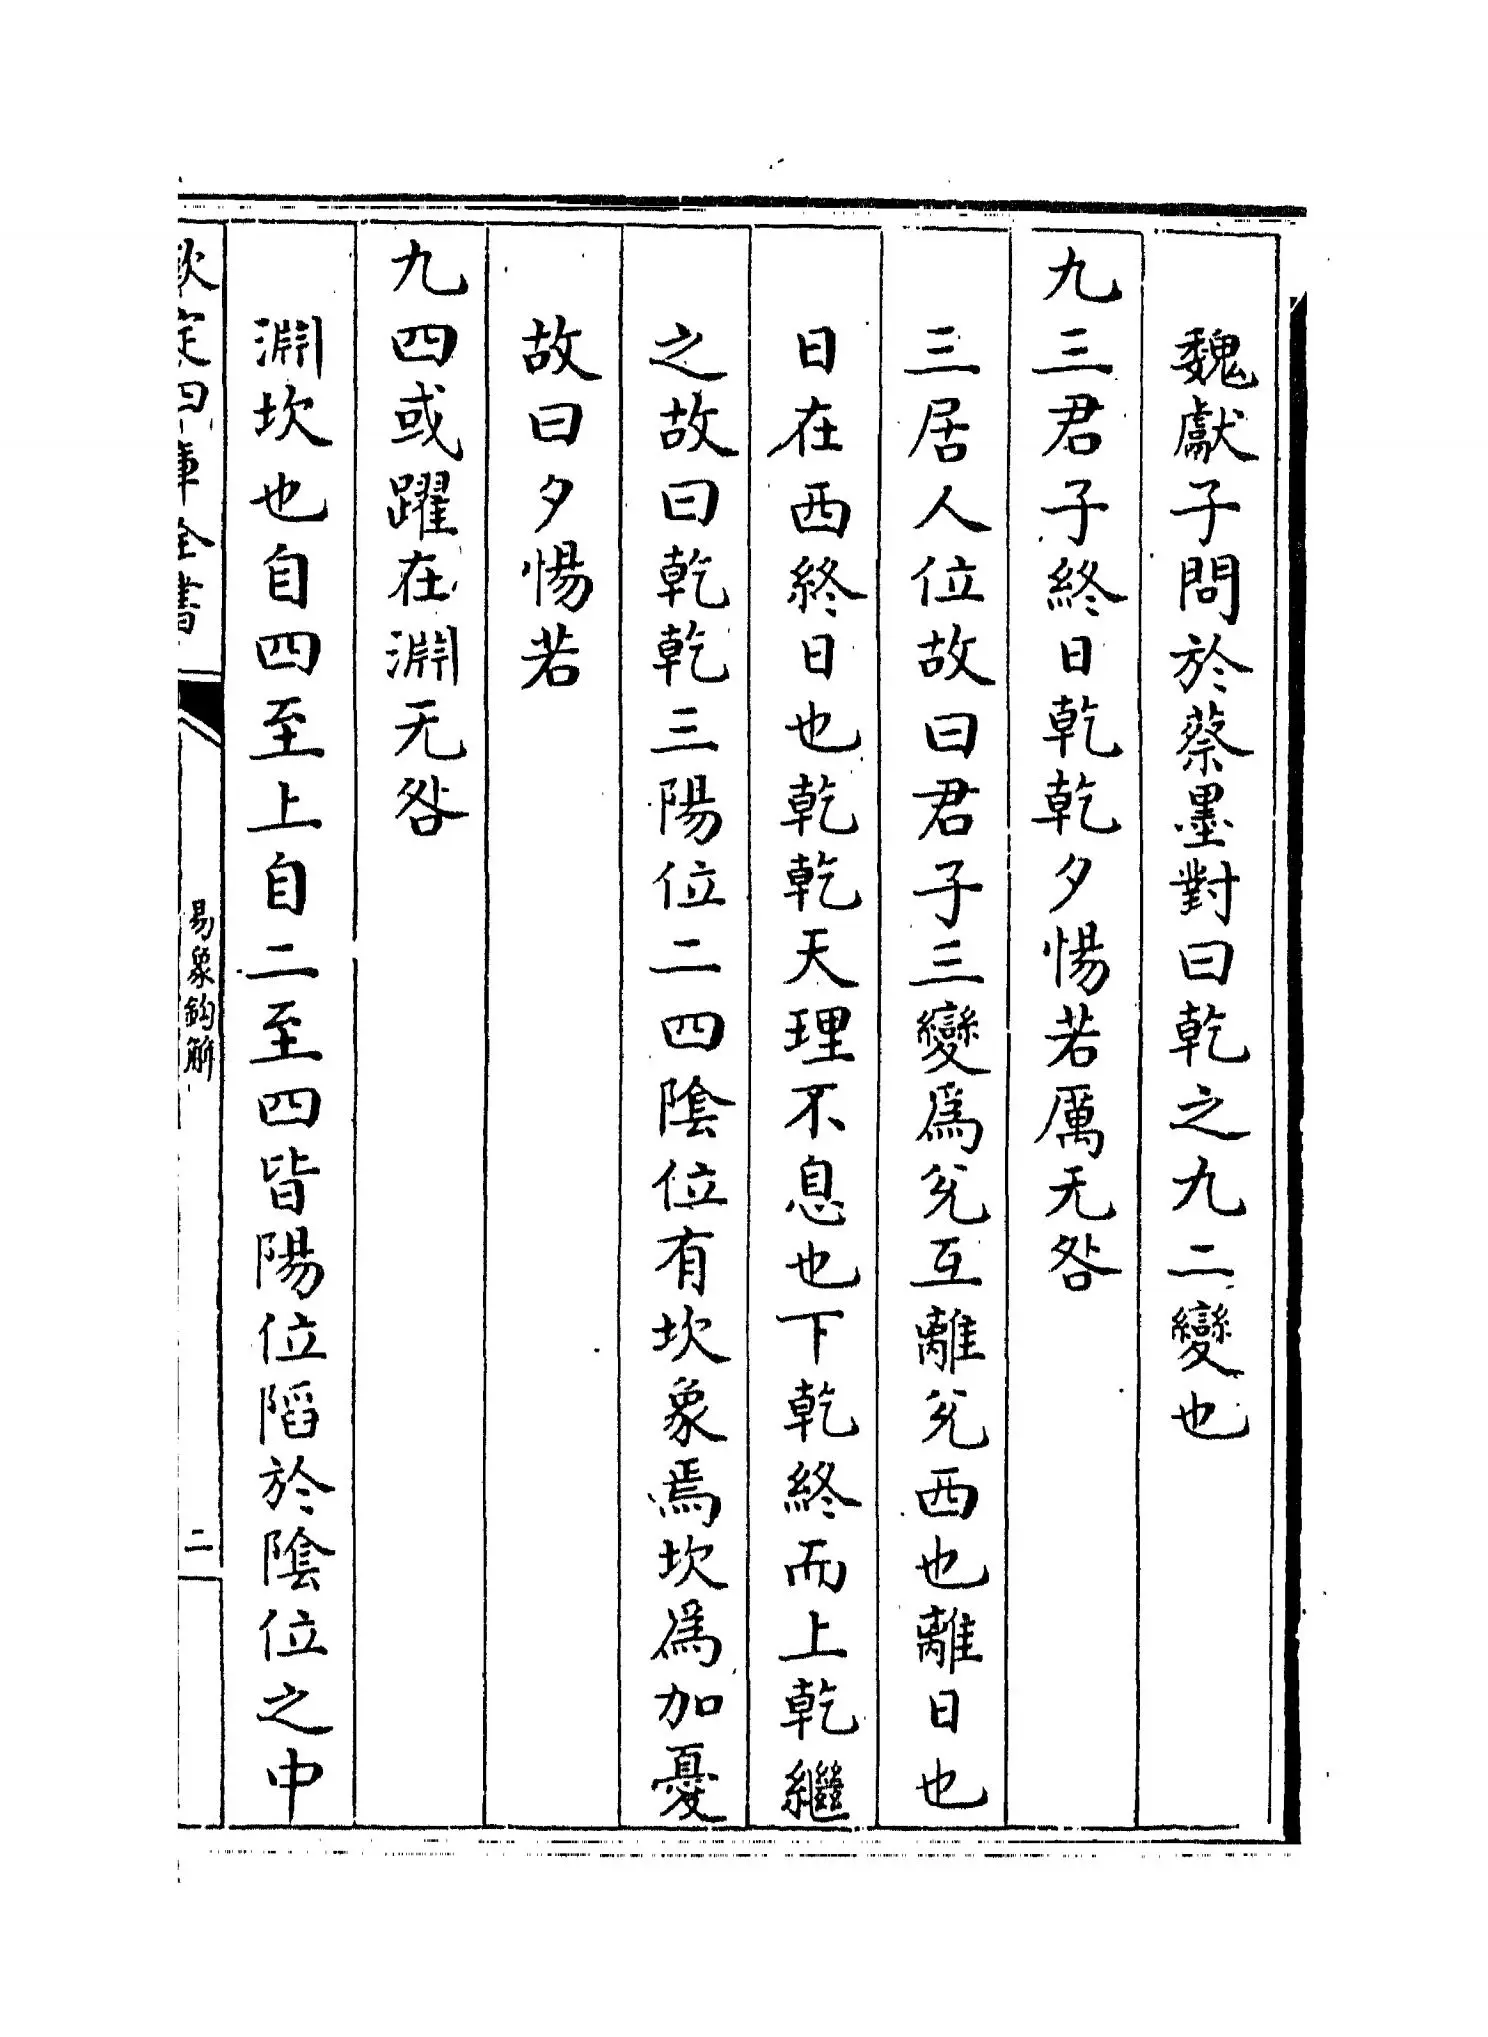 魏獻子問於蔡墨對曰乾之九二變也
九三君子終日乾乾夕惕若厲无咎
三居人位故曰君子三變為兊互離兊西也離日也
日在西終日也乾乾天理不息也下乾終而上乾繼
之故曰乾乾三陽位二四陰位有坎象焉坎為加憂
故曰夕惕若
九四或躍在淵无咎
淵坎也自四至上自二至四皆陽位陷於陰位之中
欽定四庫全書
易象鈎解
二